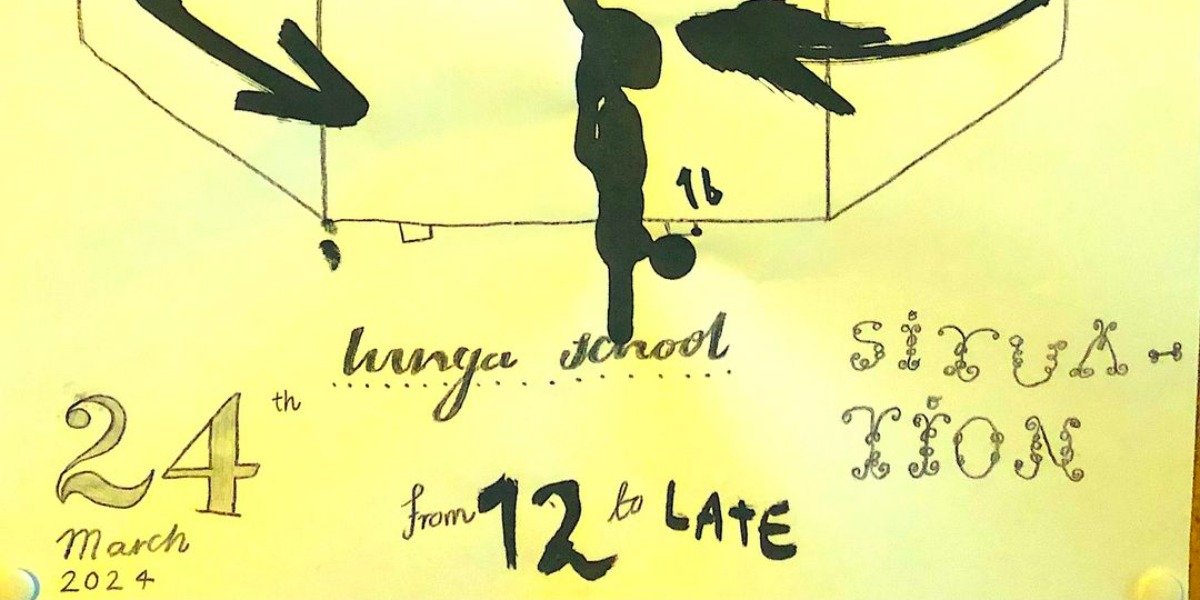 16
lunga school
SITUA-
TION
24th
March
2024
from 12 to LATE